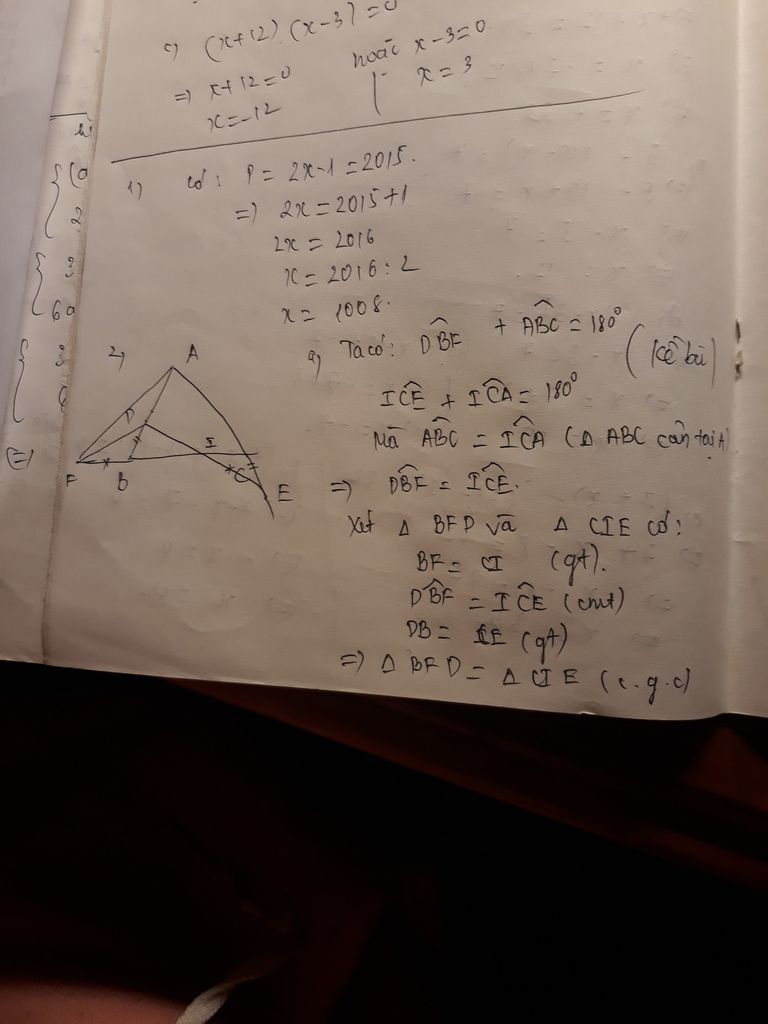 c) (x+12).(x-3)=0
=) x+12=0 hoặc x-3=0
x=-12 x=3
1) có: P = 2x-1=2015.
=) 2x=2015+1
2x = 2016
x=2016:2
x= 1008.
2) a) Ta có: DB̂F + AB̂C = 180° (Kề bù)
IĈE + IĈA = 180°
Mà AB̂C = IĈA (Δ ABC cân tại A)
=) DB̂F = IĈE.
Xét Δ BFD và Δ CIE có:
BF= CI (gt).
DB̂F = IĈE (cmt)
DB= CE (gt)
=) Δ BFD= Δ CIE (c.g.c)
A
D
I
F B C
E